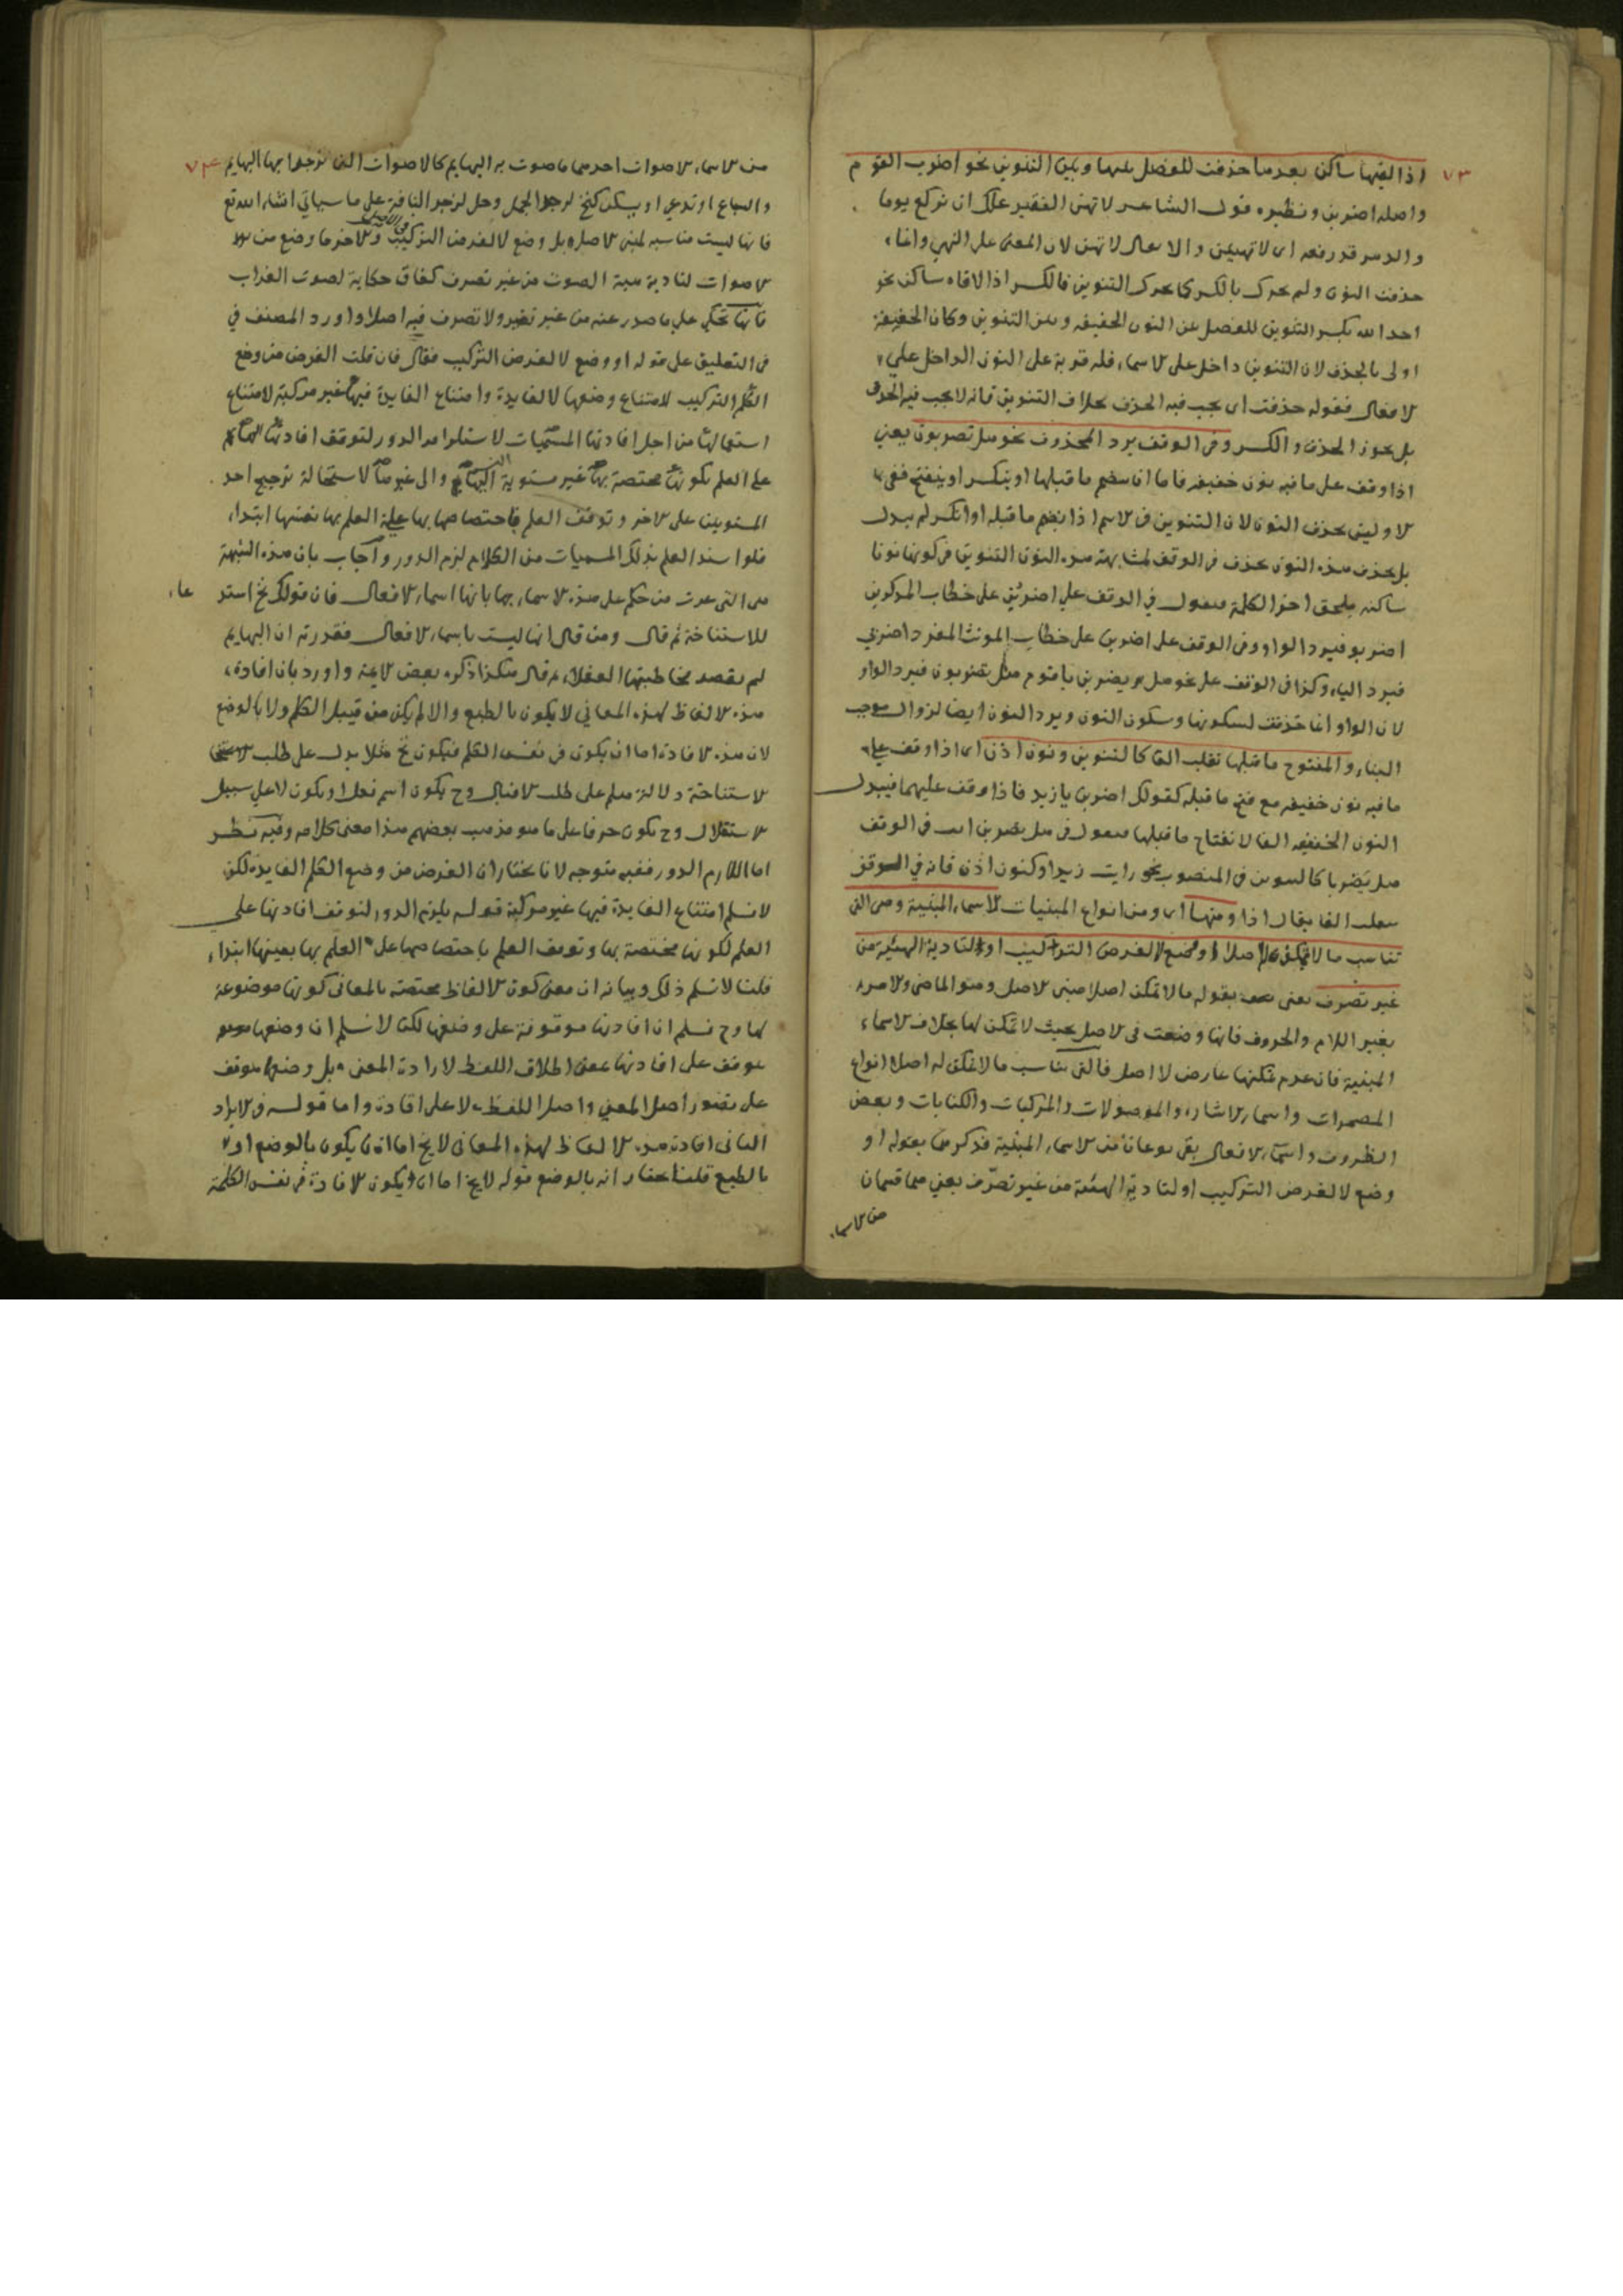 ٧٣
اذا لقيها ساكن بعدها حذفت للفصل بينها وبين التنوين نحو اضرب القوم
واصله اضربن ونظيره قول الشاعر لا تهين الفقير علك ان تركع يوما
والدهر قد رفعه اى لا تهينن والا يقال لا تهن لان المعنى على النهي وانما
حذفت النون ولم يحرك بالكسر كما يحرك التنوين بالكسر اذا لاقاه ساكن نحو
احد الله بكسر التنوين للفصل بين النون الخفيفه وبين التنوين وكان الخفيفة
اولى بالحذف لان التنوين داخل على الاسماء فله قوية على النون الداخل على
الافعال فقوله حذفت اى يجب فيه الحذف بخلاف التنوين فانه لا يجب فيه الحذف
بل يجوز الحذف والكسر وفى الوقف يرد المحذوف نحو هل تضربون يعني
اذا وقف على ما فيه نون خفيفه فاما ان ينضم ما قبلها او ينكسر او ينفتح ففى
الاوليين يحذف النون لان التنوين فى الاسم اذا نضم ما قبله او انكسر لم يبدل
بل يحذف هذه النون يحذف فى الوقف لمشابهة هذه النون التنوين فى كونها نونا
ساكنه يلحق اخر الكلمة فيقول في الوقف على اضربن على خطاب المذكرين
اضربو فيرد الواو وفى الوقف على اضربن على خطاب المونث المفرد اضربي
فيرد الياء وكذا فى الوقف على نحو هل يضربن يا قوم مثل يضربون فيرد الواو
لان الواو انما حذفت لسكونها وسكون النون ويرد النون ايضا لزوال موجب
البناء والمفتوح ما قبلها تقلب الفا كالتنوين ونون اذن اى اذا وقف على
ما فيه نون خفيفه مع فتح ما قبله كقولك اضربن يا زيد فاذا وقف عليهما فيبدل
النون الخفيفه الفا لانفتاح ما قبلها فيقول فى هل يضربن اى فى الوقف
هل يضربا كالتنوين فى المنصوب نحو رايت زيدا وكنون اذن فانه في الوقف
يقلب الفا يقال اذا ومنها اى ومن انواع المبنيات الاسماء المبنية وهى التى
تناسب ما لا تمكن له اصلا او وضع لا لغرض التركيب او لتادية الهيئة من
غير تصرف يعنى بقوله ما لا تمكن اصلا مبنى الاصل وهو الماضى والامر
بغير اللام والحروف فانها وضعت فى الاصل بحيث لا تمكن لها بخلاف الاسماء
المبنية فان عدم تمكنها عارض لا اصل فالتى تناسب ما لا تمكن له اصلا انواع
المضمرات واسماء الاشارة والموصولات والمركبات والكنايات وبعض
الظروف واسماء الافعال بقى نوعان من الاسماء المبنية فذكرهما بقوله او
وضع لا لغرض التركيب او لتادية الهيئة من غير تصرف يعني هما قسمان
من الاسماء
٧٤
من الاسماء الاصوات احدهما ما صوت به البهايم كالاصوات التى تزجر بها البهايم
والسباع او تدعى او يسكن كنخ لزجر الجمل وحل لزجر الناقة على ما سيأتي انشاء الله تع
فانها ليست مناسبة لمبنى الاصل بل وضع لا لغرض التركيب والاخر ما وضع من
فى الاصل
الاصوات لتادية هيئة الصوت من غير تصرف كغاق حكاية لصوت الغراب
فانها تحكي على ما صدر عنه من غير تغيير ولا تصرف فيه اصلا واورد المصنف في
فى التعليق على قوله او وضع لا لغرض التركيب فقال فان قلت الغرض من وضع
الكلم التركيب لامتناع وضعها لا لفايدة وامتناع الفايدة فيها غير مركبة لامتناع
استعمالها من اجل افادتها المسميات لاستلزامه الدور لتوقف افادتها لها
على العلم بكونها مختصة بها غير مستوية اليها والى غيرها لاستحالة ترجيح احد
المستويين على الاخر وتوقف العلم باختصاصها بها على العلم بها نفسها ابتداء
فلو استند العلم بذلك المسميات من الكلام لزم الدور واجاب بان هذه الشبهة
هى التى عرت من حكم على هذه الاسماء بها بانها اسماء الافعال فان قولك نخ استد عاء
للاستناخة ثم قال ومن قال انها ليست باسماء الافعال فقدرته ان البهايم
لم يقصد مخاطبتها العقلاء ثم قال هكذا ذكره بعض الائمة واورد بان افادة
هذه الالفاظ لهذه المعاني لا يكون بالطبع والا لم يكن من قبيل الكلم ولا بالوضع
لان هذه الافادة اما ان يكون فى نفس الكلم فيكون نخ مثلا يدل على طلب
الاستناخة دلالة صلم على طلب الاقبال وح يكون اسم فعل او يكون لا على سبيل
الاستقلال وح يكون حرفا على ما هو مذهب بعضهم هذا معنى كلامه وفيه نظر
اما اللازم الدور فغير متوجه لانا نختار ان الغرض من وضع الكلم الفايدة لكن
لا نسلم امتناع الفايدة فيها غير مركبة قوله يلزم الدور لتوقف افادتها على
العلم لكونها مختصة بها وتوقف العلم باختصاصها على العلم بها بعينها ابتداء
قلنا لا نسلم ذلك وبيانه ان معنى كون الالفاظ مختصة بالمعانى كونها موضوعة
لها وح نسلم ان افادتها موقوفة على وضعها لكن لا نسلم ان وضعها
موقف على افادتها بمعنى اطلاق اللفظ لارادة المعنى بل وضعها موقف
على تصور اصل المعني واصل اللفظ لا على افادة واما قوله فى الايراد
الثانى افادة هذه الالفاظ لهذه المعانى لا يخ اما ان يكون بالوضع او
بالطبع قلنا نختار انه بالوضع قوله لا يخ اما ان يكون الافادة فى نفس الكلمة